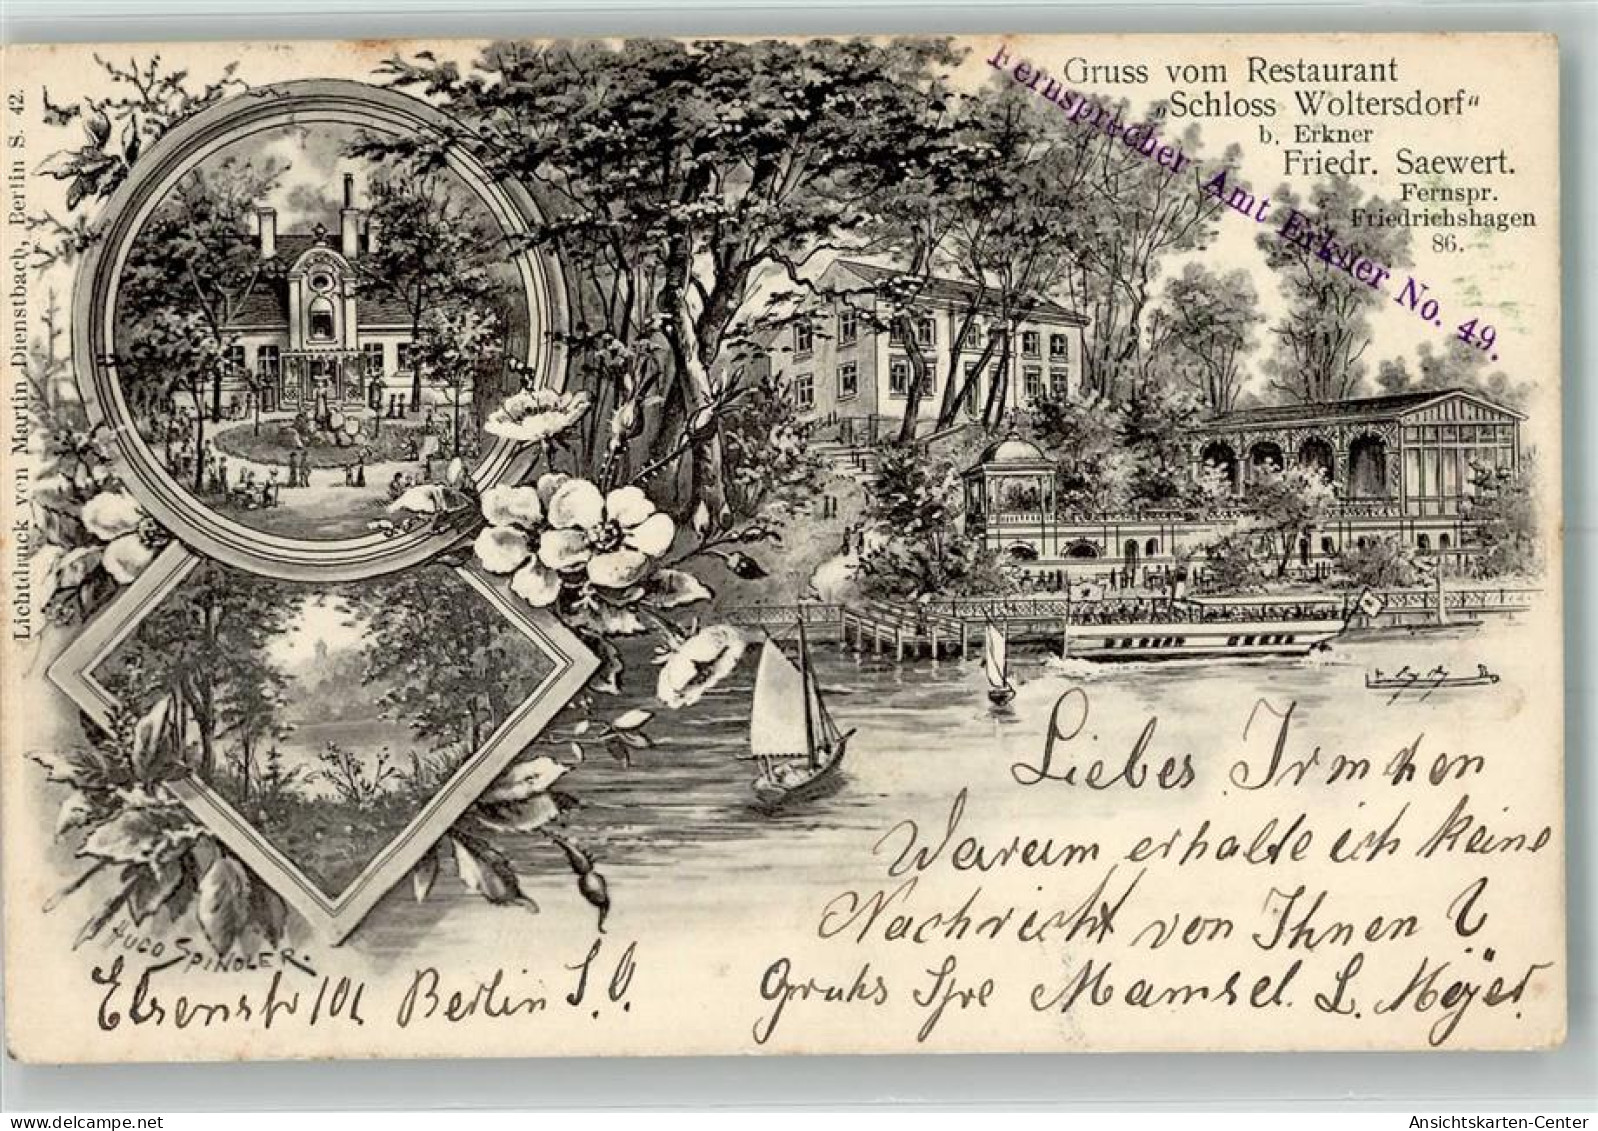 Gruss vom Restaurant
„Schloss Woltersdorf“
b. Erkner
Friedr. Saewert.
Fernspr.
Friedrichshagen
86.
Fernsprecher Amt Erkner No. 49.
Lichtdruck von Martin Dienstbach, Berlin S. 42.
HUGO SPINDLER.
Liebes Irmchen
Warum erhalte ich keine
Nachricht von Ihnen ?
Gruhs Ihre Mamsel. L. Meyer.
Elsenstr 101 Berlin S. O.
Ansichtskarten-Center